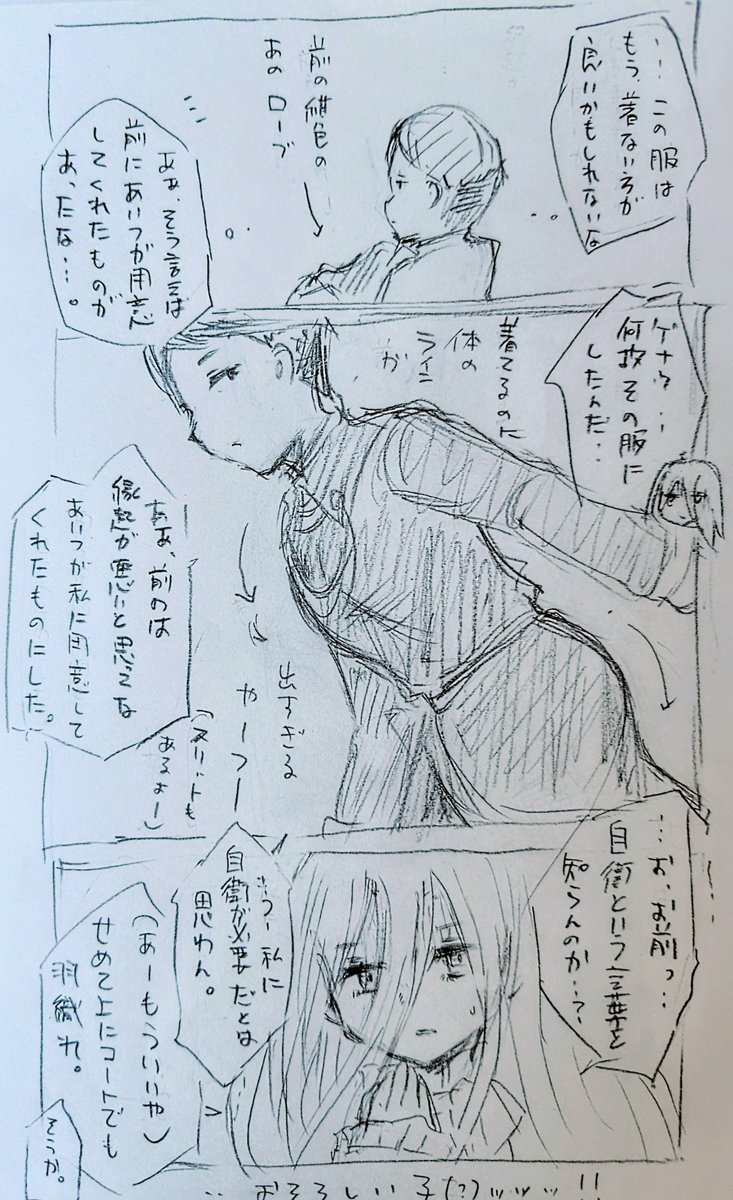 …この服は
もう、着ないろが
良いかもしれないな
前の紺色の
あの ローブ
あぁ、そう言えば
前にあいつが用意
してくれたものが
あったな…。
ゲナウ…
何故その服に
したんだ…
着てるのに
体の
ライン
が
あぁ、前のは
縁起が悪いと思ってな
あいつが私に用意して
くれたものにした。
出すぎる
やーつー
(スリットも
あるよー)
…お、お前っ…
自衛という言葉を
知らんのか…?
…私に
自衛が必要だとは
思わん。
(あーもういいや)
せめて上にコートでも
羽織れ。
そうか。
…おそろしい子(?)ッッッ!!